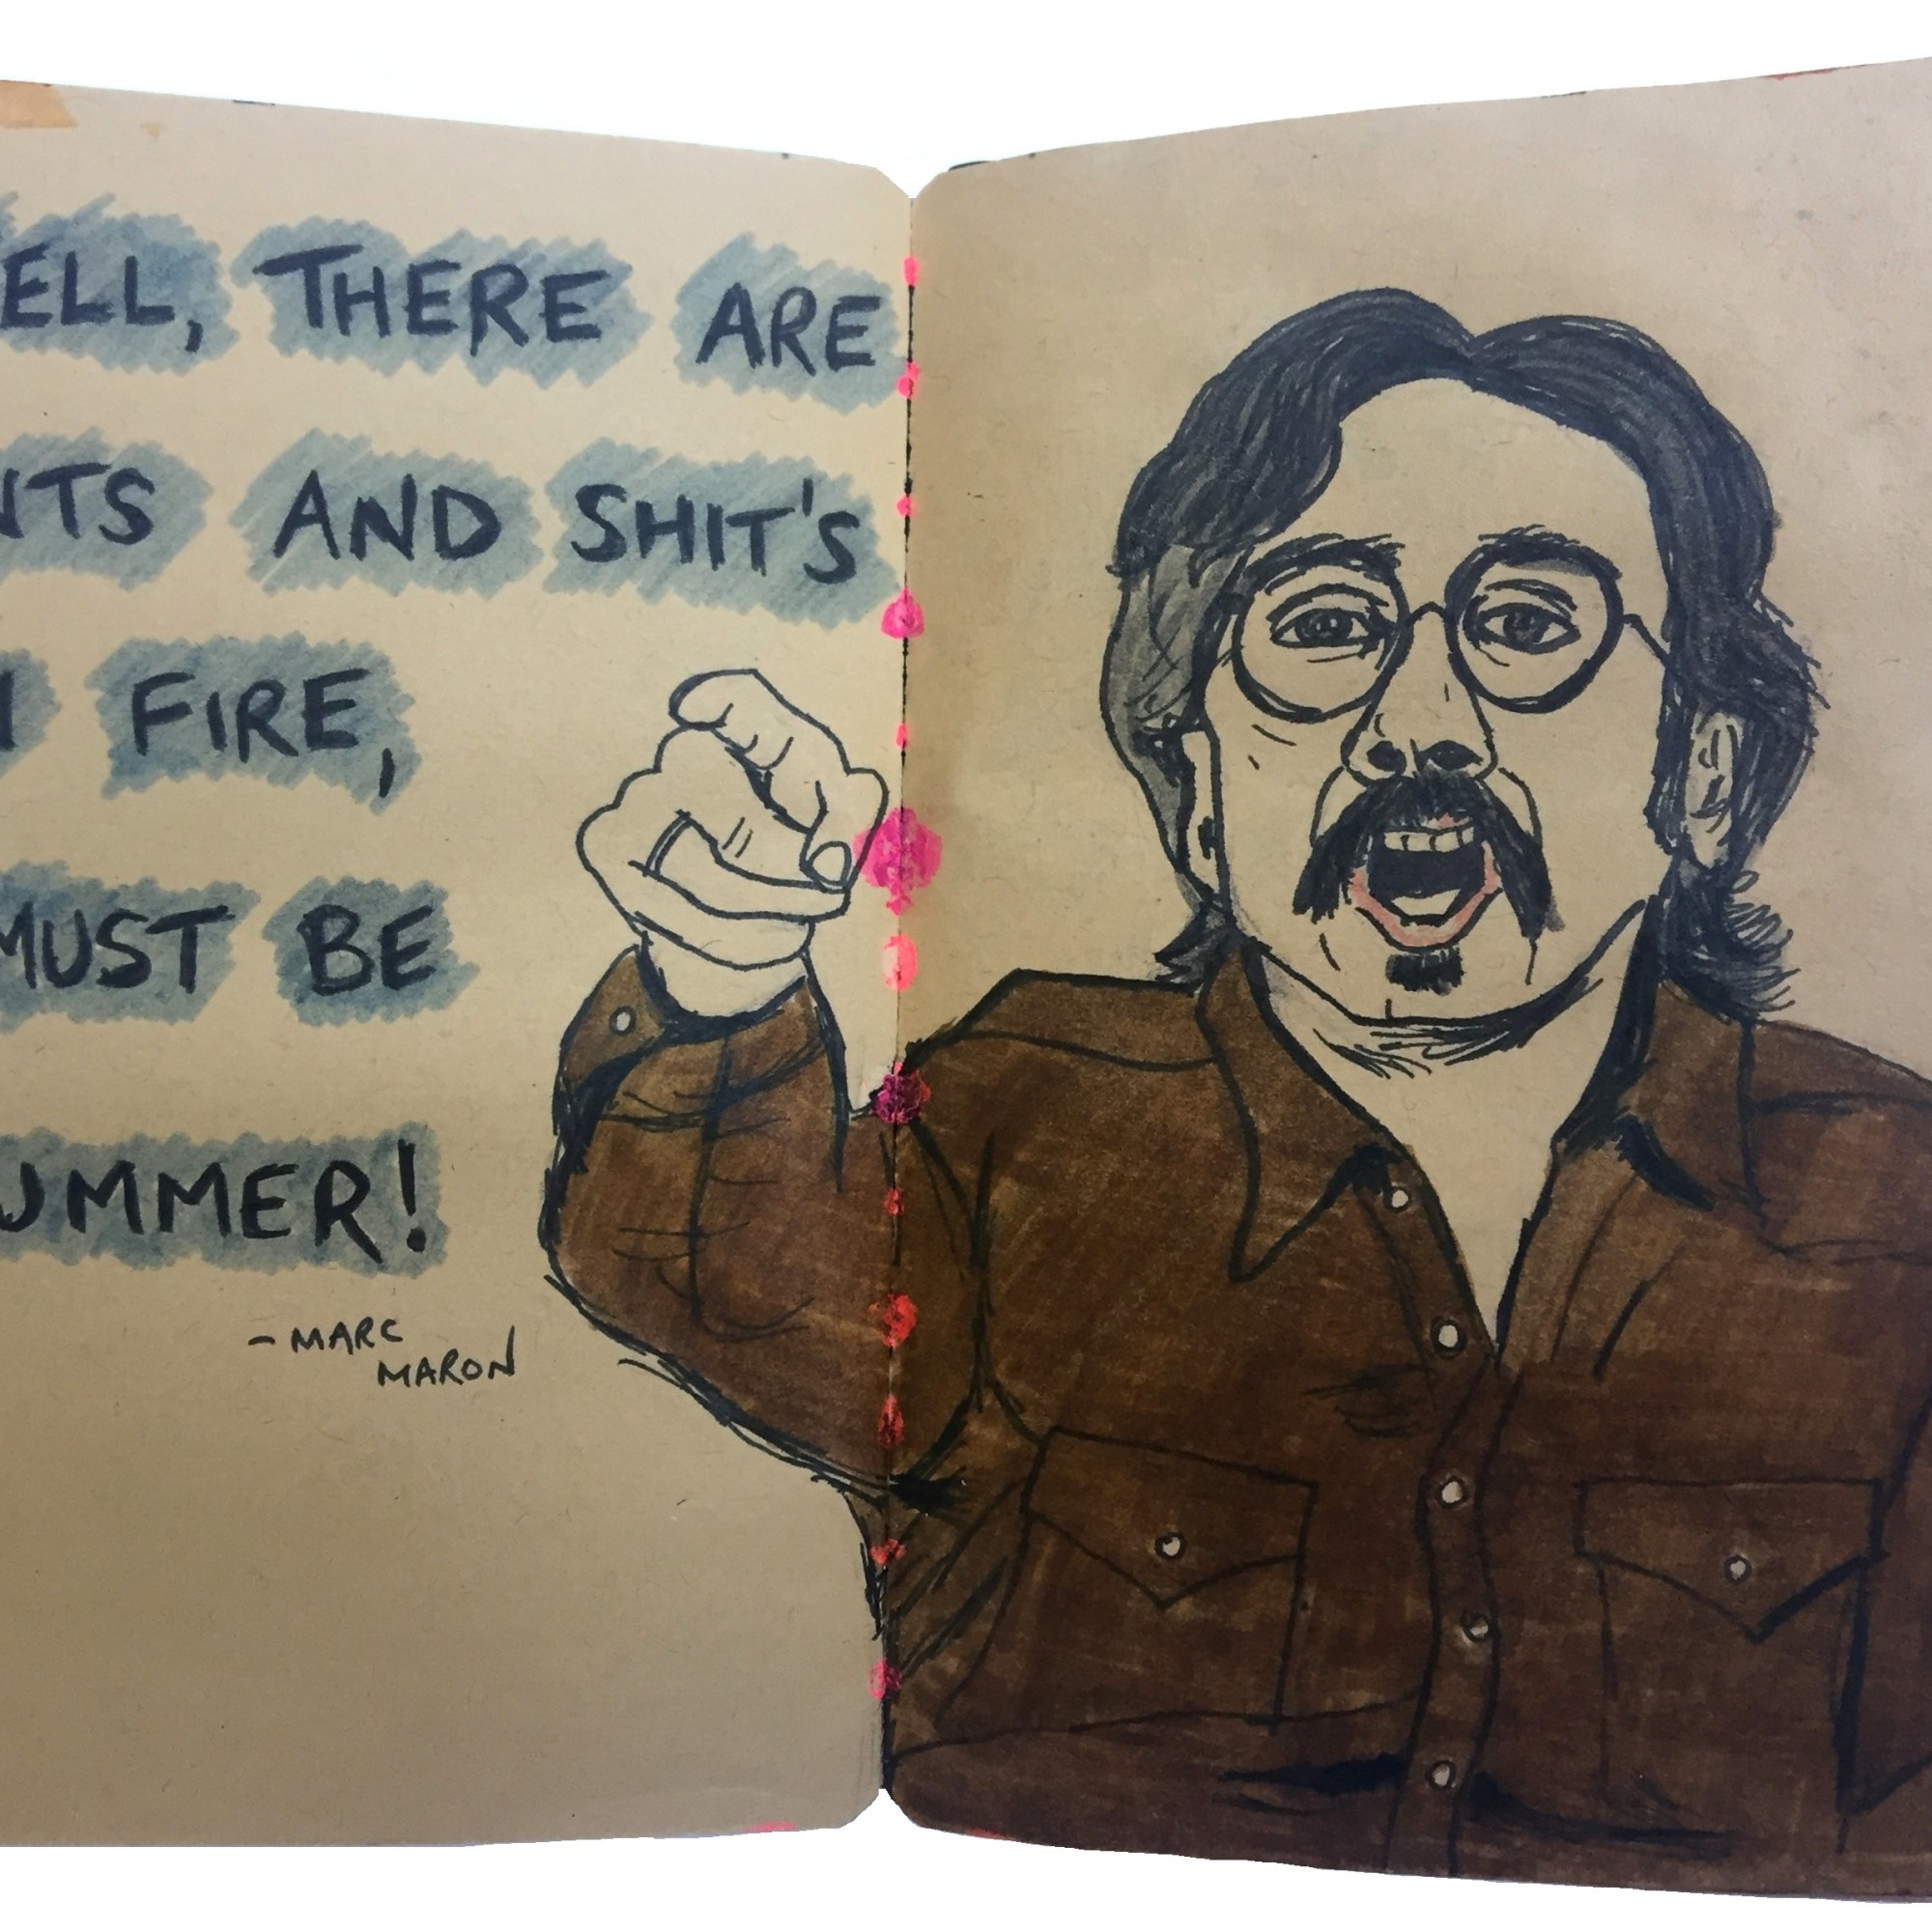 ELL, THERE ARE
NTS AND SHIT'S
FIRE,
MUST BE
UMMER!
- MARC
MARON